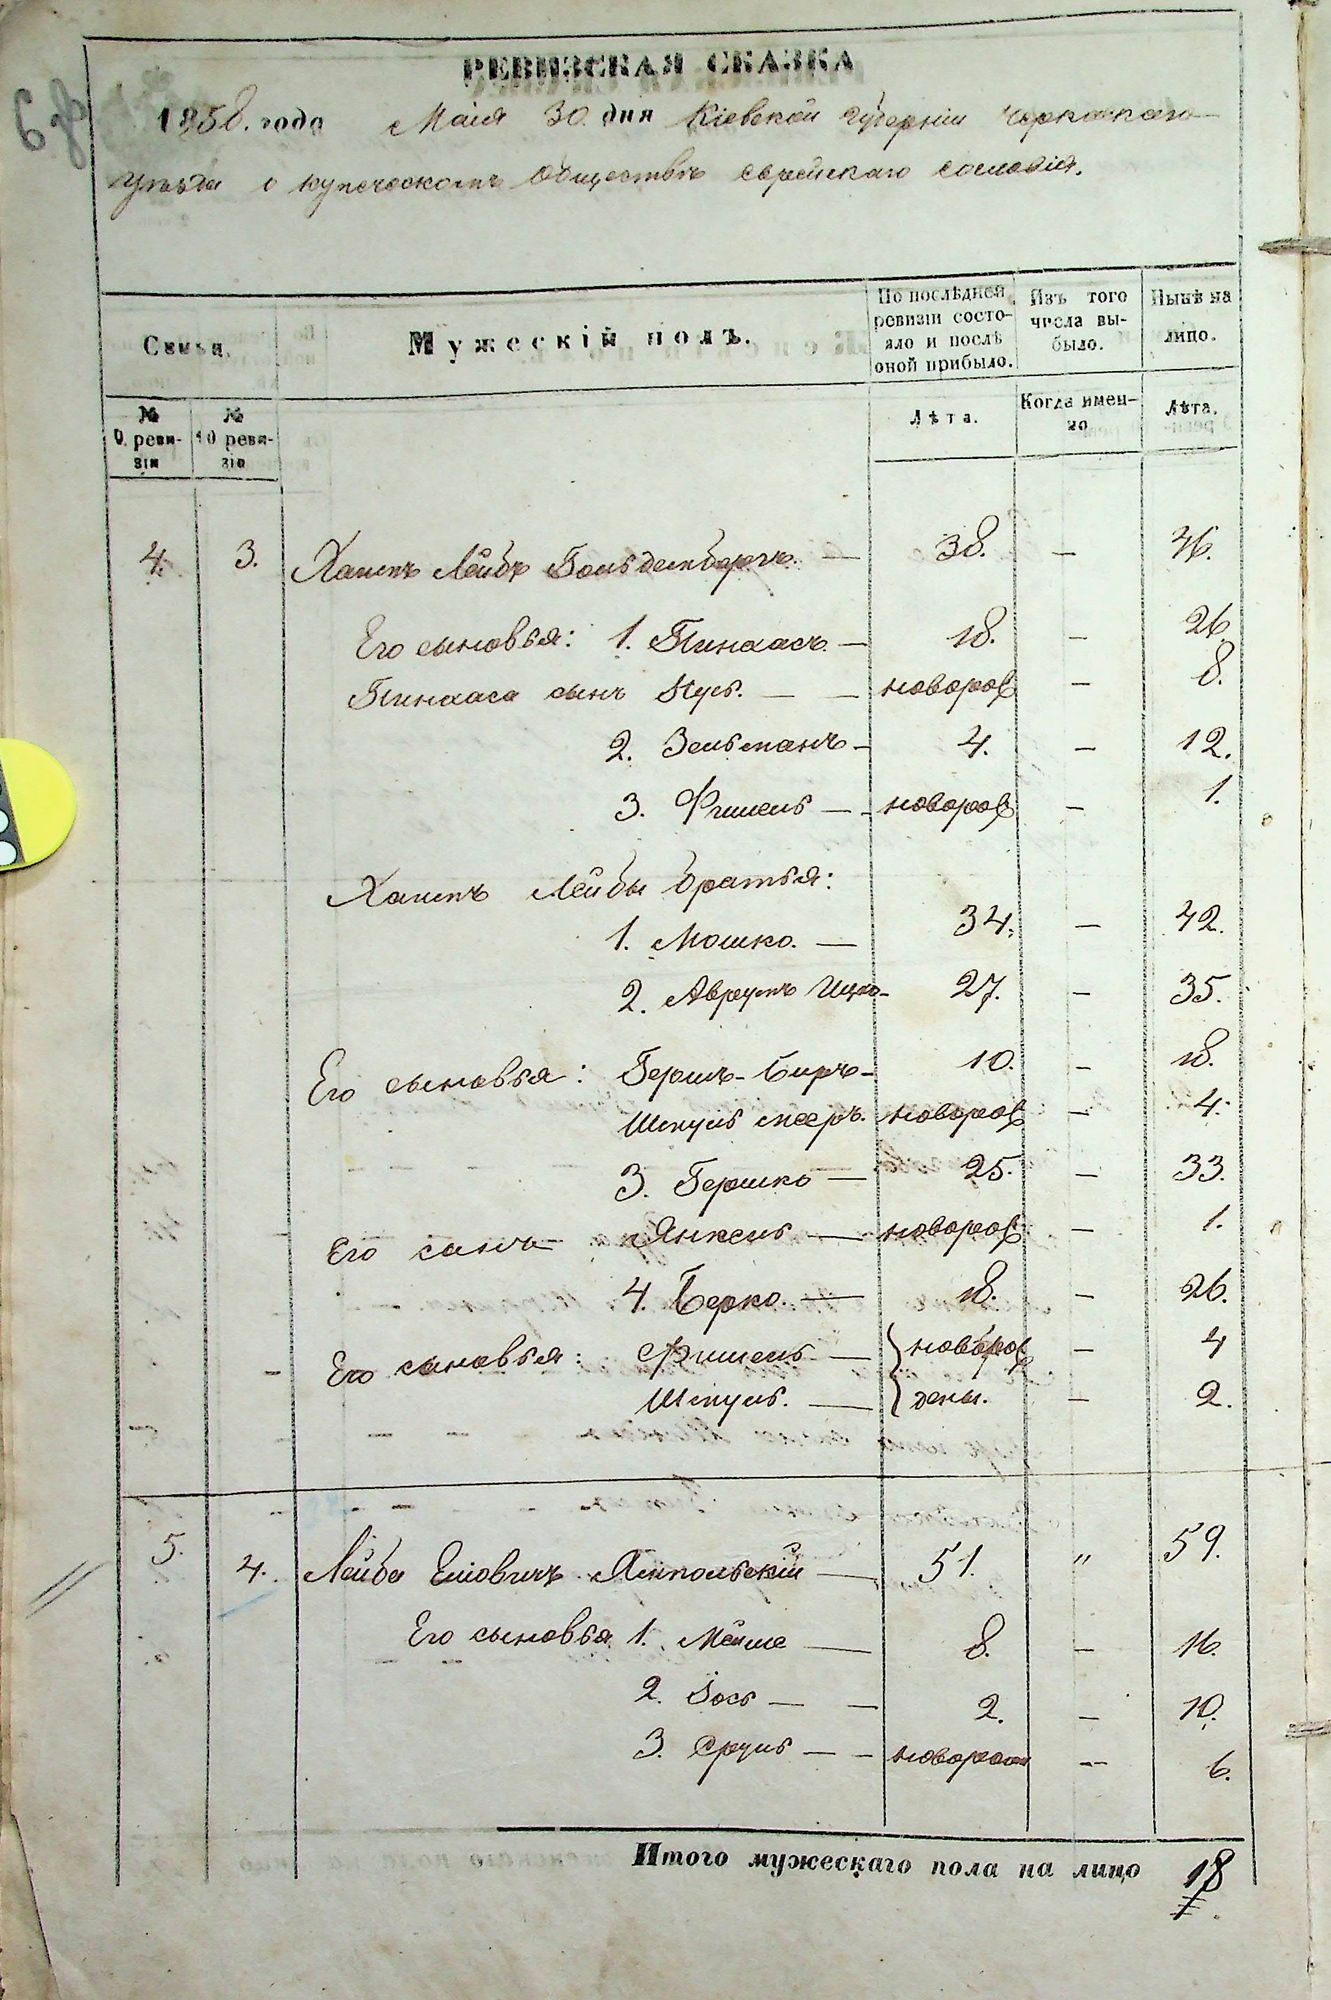 РЕВИЗСКАЯ СКАЗКА
1858. года Маія 30 дня Кіевской Губерніи Черкаскаго
Уѣзда о купеческомъ Обществѣ еврейскаго сословія.
Семья.
Мужескій полъ.
По послѣдней ревизіи состояло и послѣ оной прибыло.
Изъ того числа выбыло.
Нынѣ на лицо.
№ 9 ревизіи
№ 10 ревизіи
Лѣта.
Когда именно
Лѣта.
4. 3. Хаимъ Лейбъ Гольденбергъ. — 38. — 46.
Его сыновья: 1. Пинхасъ. — 18. — 26.
Пинхаса сынъ Нусь. — — новорож — 8.
2. Зельманъ — 4. — 12.
3. Фишель — новорож — 1.
Хаимъ Лейбы братья:
1. Мошко. — 34. — 42.
2. Аврумъ Ицко — 27. — 35.
Его сыновья: Гершъ-Беръ — 10. — 18.
Шмуль мееръ. новорож — 4.
3. Гершко — 25. — 33.
Его сынъ Янкель — новорож — 1.
4. Берко. — 18. — 26.
Его сыновья: Фишель — новорож — 4
Шмуль. — дены. — 2.
5. 4. Лейба Еліовичъ Ямпольскій — 51. " 59.
Его сыновья 1. Мейше — 8. — 16.
2. Іось — — 2. — 10.
3. Сруль — — новорож — 6.
Итого мужескаго пола на лицо 18